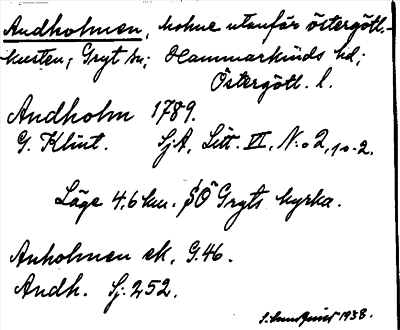 Andholmen, holme utanför östergötl.-
kusten; Gryt sn; Hammarkinds hd;
Östergötl. l.
Andholm 1789.
G. Klint. SjA, Litt. VI, N:o 2, 10-2.
Läge 4,6 km. SÖ Gryts kyrka.
Anholmen ek. G.46.
Andh. Sj: 252.
1938.